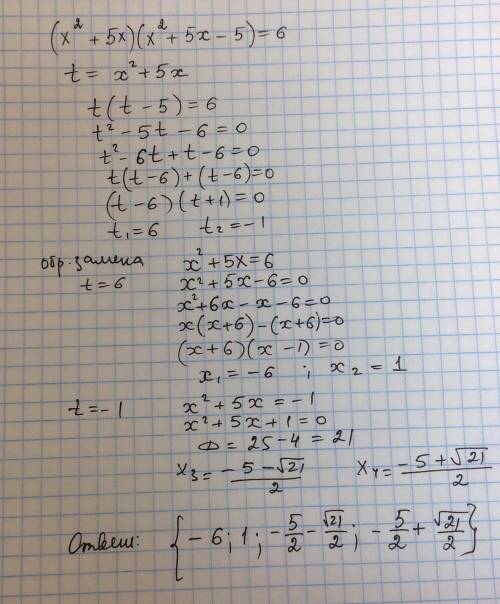 (x² + 5x)(x² + 5x - 5) = 6
t = x² + 5x
t(t - 5) = 6
t² - 5t - 6 = 0
t² - 6t + t - 6 = 0
t(t - 6) + (t - 6) = 0
(t - 6)(t + 1) = 0
t₁ = 6 t₂ = -1
обр. замена x² + 5x = 6
t = 6 x² + 5x - 6 = 0
x² + 6x - x - 6 = 0
x(x + 6) - (x + 6) = 0
(x + 6)(x - 1) = 0
x₁ = -6 ; x₂ = 1
t = -1 x² + 5x = -1
x² + 5x + 1 = 0
D = 25 - 4 = 21
x₃ = (-5 - √21)/2 x₄ = (-5 + √21)/2
Ответ: {-6; 1; -5/2 - √21/2; -5/2 + √21/2}